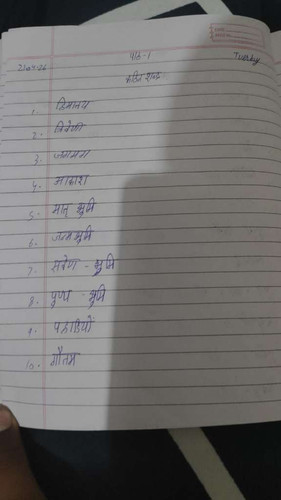 21-04-26 पाठ-1 Tuesday
कठिन शब्द
1. हिमालय
2. त्रिवेणी
3. जगमग
4. आकाश
5. मातृ भूमि
6. जन्म भूमि
7. भूमि
8. पुण्य - भूमि
9. पहाड़ियाँ
10. गौतम